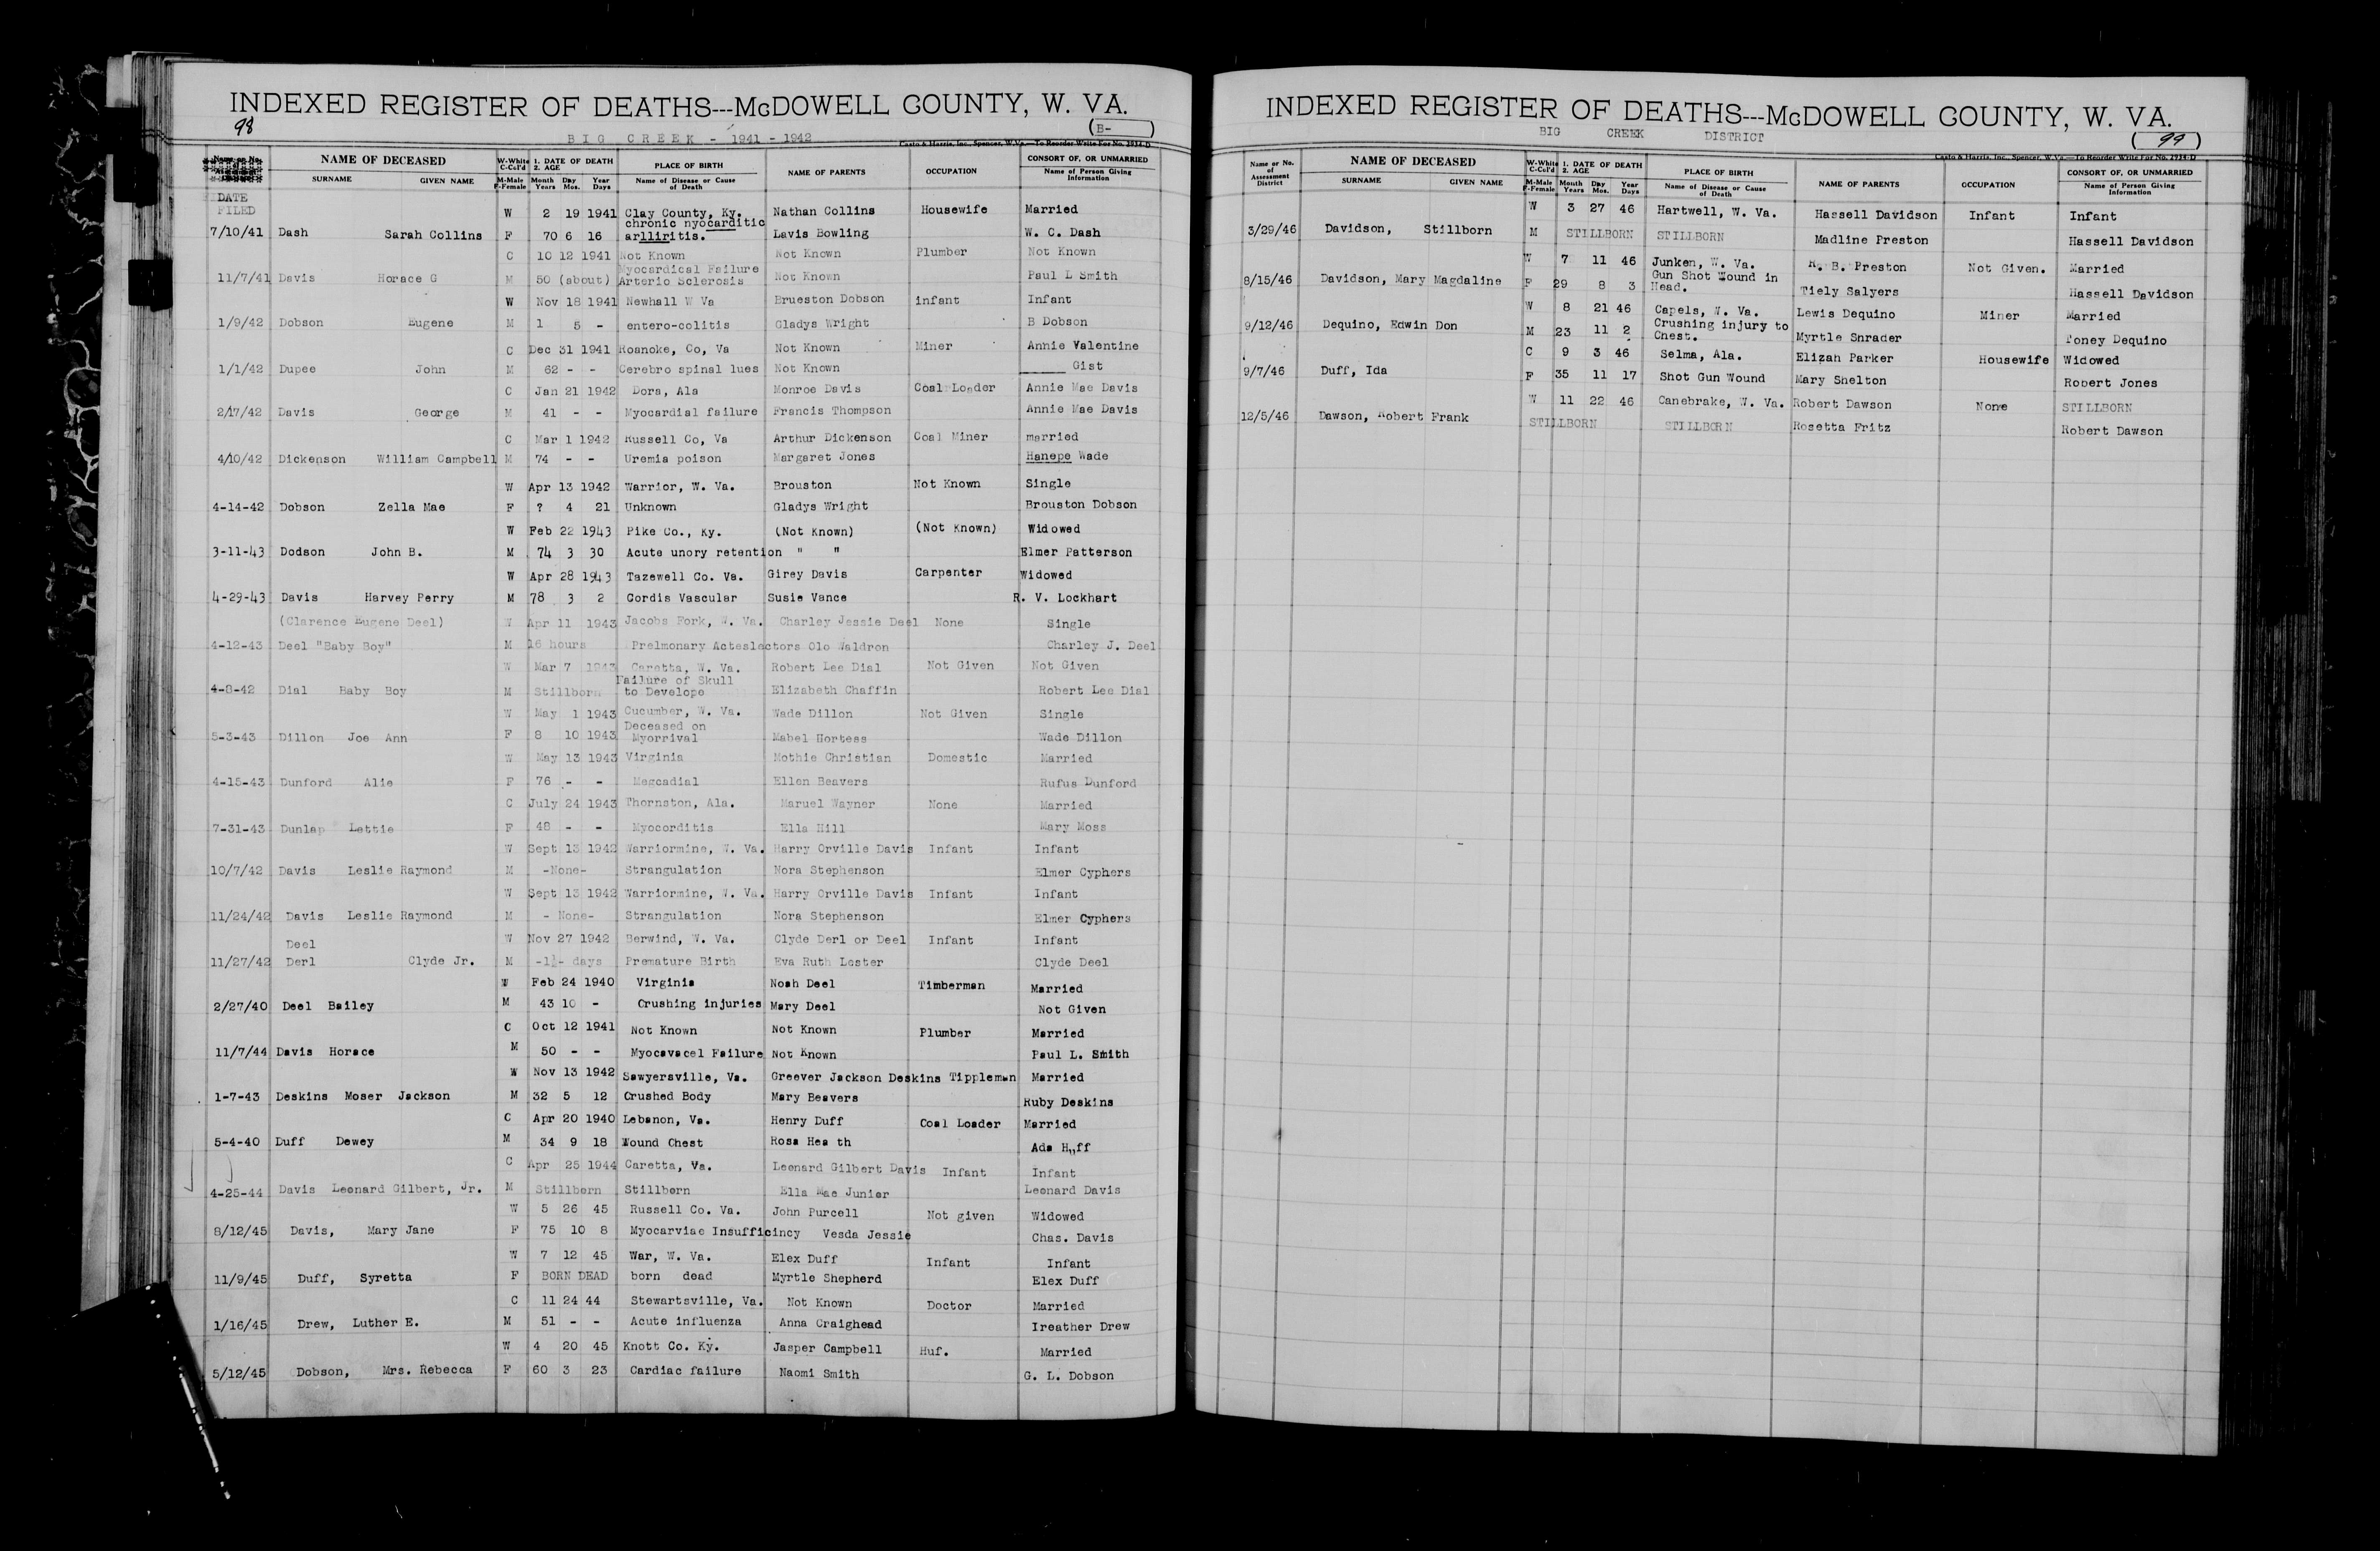 INDEXED REGISTER OF DEATHS---McDOWELL COUNTY, W. VA.
98
BIG CREEK - 1941 - 1942 (B- )
Casto & Harris, Inc., Spencer, W.Va.—To Reorder Write For No. 2934-D
NAME OF DECEASED W-White 1. DATE OF DEATH PLACE OF BIRTH NAME OF PARENTS OCCUPATION CONSORT OF, OR UNMARRIED
C-Col'd 2. AGE
SURNAME GIVEN NAME M-Male Month Day Year Name of Disease or Cause Name of Person Giving
F-Female Years Mos. Days of Death Information
DATE
FILED W 2 19 1941 Clay County, Ky. Nathan Collins Housewife Married
chronic nyocarditic
7/10/41 Dash Sarah Collins F 70 6 16 arlliritis. Lavis Bowling W. C. Dash
C 10 12 1941 Not Known Not Known Plumber Not Known
Myocardical Failure
11/7/41 Davis Horace G M 50 (about) Arterio Sclerosis Not Known Paul L Smith
W Nov 18 1941 Newhall W Va Brueston Dobson infant Infant
1/9/42 Dobson Eugene M 1 5 - entero-colitis Gladys Wright B Dobson
C Dec 31 1941 Roanoke, Co, Va Not Known Miner Annie Valentine
1/1/42 Dupee John M 62 - - Cerebro spinal lues Not Known ______ Gist
C Jan 21 1942 Dora, Ala Monroe Davis Coal Loader Annie Mae Davis
2/17/42 Davis George M 41 - - Myocardial failure Francis Thompson Annie Mae Davis
C Mar 1 1942 Russell Co, Va Arthur Dickenson Coal Miner married
4/10/42 Dickenson William Campbell M 74 - - Uremia poison Margaret Jones Hanepe Wade
W Apr 13 1942 Warrior, W. Va. Brouston Not Known Single
4-14-42 Dobson Zella Mae F ? 4 21 Unknown Gladys Wright Brouston Dobson
W Feb 22 1943 Pike Co., Ky. (Not Known) (Not Known) Widowed
3-11-43 Dodson John B. M 74 3 30 Acute unory retention " " Elmer Patterson
W Apr 28 1943 Tazewell Co. Va. Girey Davis Carpenter Widowed
4-29-43 Davis Harvey Perry M 78 3 2 Cordis Vascular Susie Vance R. V. Lockhart
(Clarence Eugene Deel) W Apr 11 1943 Jacobs Fork, W. Va. Charley Jessie Deel None Single
4-12-43 Deel "Baby Boy" M 16 hours Prelmonary Acteslectors Olo Waldron Charley J. Deel
W Mar 7 1943 Caretta, W. Va. Robert Lee Dial Not Given Not Given
Failure of Skull
4-8-42 Dial Baby Boy M Stillborn to Develope Elizabeth Chaffin Robert Lee Dial
W May 1 1943 Cucumber, W. Va. Wade Dillon Not Given Single
Deceased on
5-3-43 Dillon Joe Ann F 8 10 1943 Myorrival Mabel Hortess Wade Dillon
W May 13 1943 Virginia Mothie Christian Domestic Married
4-15-43 Dunford Alie F 76 - - Megcadial Ellen Beavers Rufus Dunford
C July 24 1943 Thornston, Ala. Maruel Wayner None Married
7-31-43 Dunlap Lettie F 48 - - Myocorditis Ella Hill Mary Moss
W Sept 13 1942 Warriormine, W. Va. Harry Orville Davis Infant Infant
10/7/42 Davis Leslie Raymond M -None- Strangulation Nora Stephenson Elmer Cyphers
W Sept 13 1942 Warriormine, W. Va. Harry Orville Davis Infant Infant
11/24/42 Davis Leslie Raymond M - None- Strangulation Nora Stephenson Elmer Cyphers
Deel W Nov 27 1942 Berwind, W. Va. Clyde Derl or Deel Infant Infant
11/27/42 Derl Clyde Jr. M -1½- days Premature Birth Eva Ruth Lester Clyde Deel
W Feb 24 1940 Virginia Noah Deel Timberman Married
2/27/40 Deel Bailey M 43 10 - Crushing injuries Mary Deel Not Given
C Oct 12 1941 Not Known Not Known Plumber Married
11/7/44 Davis Horace M 50 - - Myocavacel Failure Not Known Paul L. Smith
W Nov 13 1942 Sawyersville, Va. Greever Jackson Deskins Tippleman Married
1-7-43 Deskins Moser Jackson M 32 5 12 Crushed Body Mary Beavers Ruby Deskins
C Apr 20 1940 Lebanon, Va. Henry Duff Coal Loader Married
5-4-40 Duff Dewey M 34 9 18 Wound Chest Rosa Hea th Ada Huff
C Apr 25 1944 Caretta, Va. Leonard Gilbert Davis Infant Infant
4-25-44 Davis Leonard Gilbert, Jr. M Stillborn Stillborn Ella Mae Junier Leonard Davis
W 5 26 45 Russell Co. Va. John Purcell Not given Widowed
8/12/45 Davis, Mary Jane F 75 10 8 Myocarviae Insufficincy Vesda Jessie Chas. Davis
W 7 12 45 War, W. Va. Elex Duff Infant Infant
11/9/45 Duff, Syretta F BORN DEAD born dead Myrtle Shepherd Elex Duff
C 11 24 44 Stewartsville, Va. Not Known Doctor Married
1/16/45 Drew, Luther E. M 51 - - Acute influenza Anna Craighead Ireather Drew
W 4 20 45 Knott Co. Ky. Jasper Campbell Huf. Married
5/12/45 Dobson, Mrs. Rebecca F 60 3 23 Cardiac failure Naomi Smith G. L. Dobson
INDEXED REGISTER OF DEATHS---McDOWELL COUNTY, W. VA.
BIG CREEK DISTRICT ( 99 )
Casto & Harris, Inc., Spencer, W.Va.—To Reorder Write For No. 2934-D
Name or No. of Assessment District NAME OF DECEASED W-White 1. DATE OF DEATH PLACE OF BIRTH NAME OF PARENTS OCCUPATION CONSORT OF, OR UNMARRIED
C-Col'd 2. AGE
SURNAME GIVEN NAME M-Male Month Day Year Name of Disease or Cause Name of Person Giving
F-Female Years Mos. Days of Death Information
W 3 27 46 Hartwell, W. Va. Hassell Davidson Infant Infant
3/29/46 Davidson, Stillborn M STILLBORN STILLBORN Madline Preston Hassell Davidson
W 7 11 46 Junken, W. Va. R. B. Preston Not Given. Married
Gun Shot Wound in
8/15/46 Davidson, Mary Magdaline F 29 8 3 Head. Tiely Salyers Hassell Davidson
W 8 21 46 Capels, W. Va. Lewis Dequino Miner Married
Crushing injury to
9/12/46 Dequino, Edwin Don M 23 11 2 Chest. Myrtle Snrader Toney Dequino
C 9 3 46 Selma, Ala. Elizah Parker Housewife Widowed
9/7/46 Duff, Ida F 35 11 17 Shot Gun Wound Mary Shelton Robert Jones
W 11 22 46 Canebrake, W. Va. Robert Dawson None STILLBORN
12/5/46 Dawson, Robert Frank STILLBORN STILLBORN Rosetta Fritz Robert Dawson